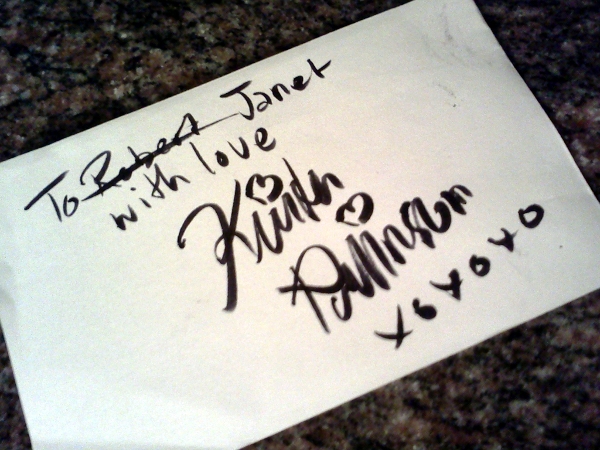 To Robert Janet
with love
Kirsten
Pattinson
xoxoxo